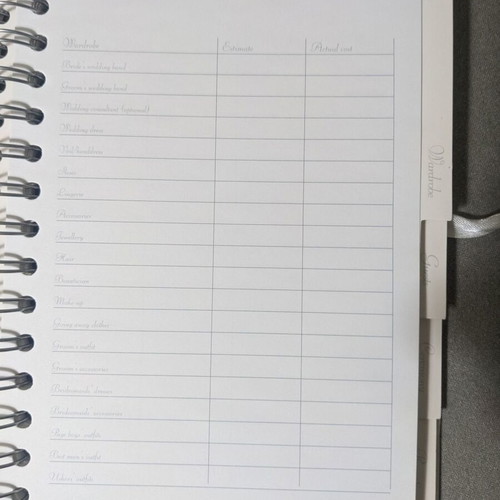 Wardrobe Estimate Actual cost
Bride's wedding band
Groom's wedding band
Wedding consultant (optional)
Wedding dress
Veil/headdress
Shoes
Lingerie
Accessories
Jewellery
Hair
Beautician
Make-up
Going away clothes
Groom's outfit
Groom's accessories
Bridesmaids' dresses
Bridesmaids' accessories
Page boys' outfits
Best man's outfit
Ushers' outfits
Wardrobe